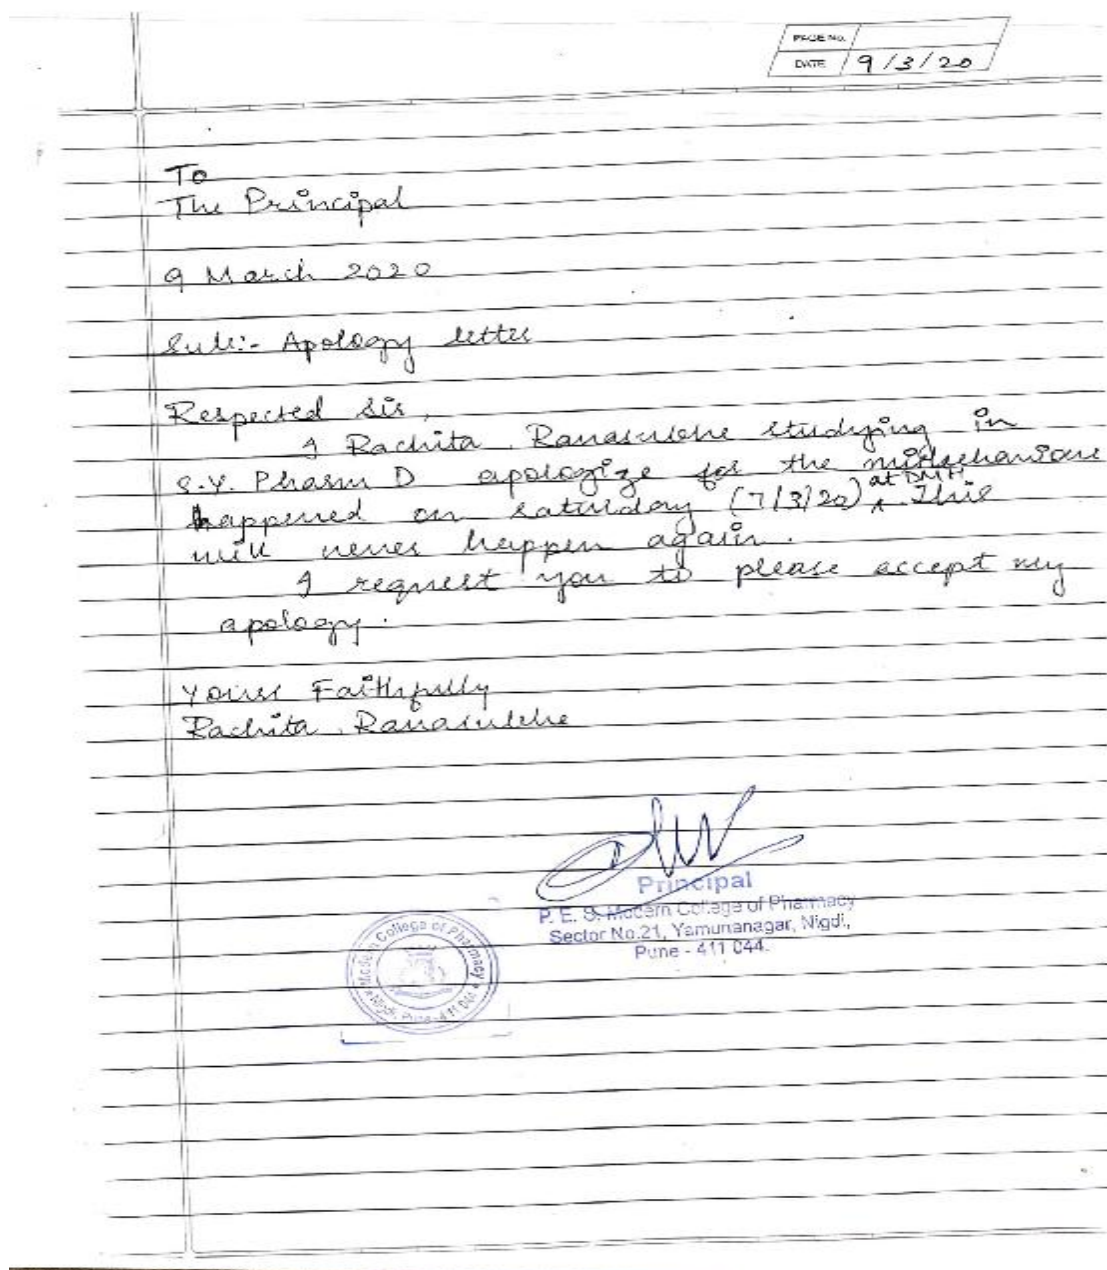 PAGE No.
DATE 9/3/20
To
The Principal
9 March 2020
Sub:- Apology letter
Respected Sir,
I Rachita Ranasubhe studying in
S.Y. Pharm D apologize for the
happened on saturday (7/3/20) at DMH. This
will never happen again.
I request you to please accept my
apology.
Yours Faithfully
Rachita Ranasubhe
Principal
P. E. S. Modern College of Pharmacy
Sector No.21, Yamunanagar, Nigdi,
Pune - 411 044.
Modern College of Pharmacy
Nigdi, Pune-411 044